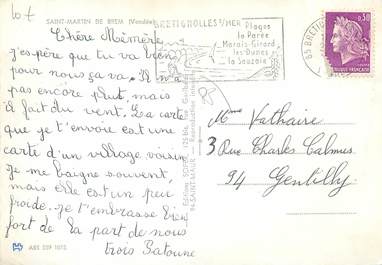 10 t
SAINT-MARTIN DE BREM (Vendée)
Chère Mémère
j'espère que tu va bien
pour nous ça va. Il n'a
pas encore plut, mais
il fait du vent. La carte
que je t'envoie est une
carte d'un village voisin
Je me baigne souvent,
mais elle est un peu
froide. je t'embrasse bien
fort de la part de nous
trois Batoune
A85 559 1075
BRETIGNOLLES S/MER
Plages
la Parée
Marais-Girard
les Dunes
la Sauzaie
85 BRETIG
0,30
REPUBLIQUE FRANCAISE
Mme Vathaire
3 Rue Charles Calmus
94 Gentilly